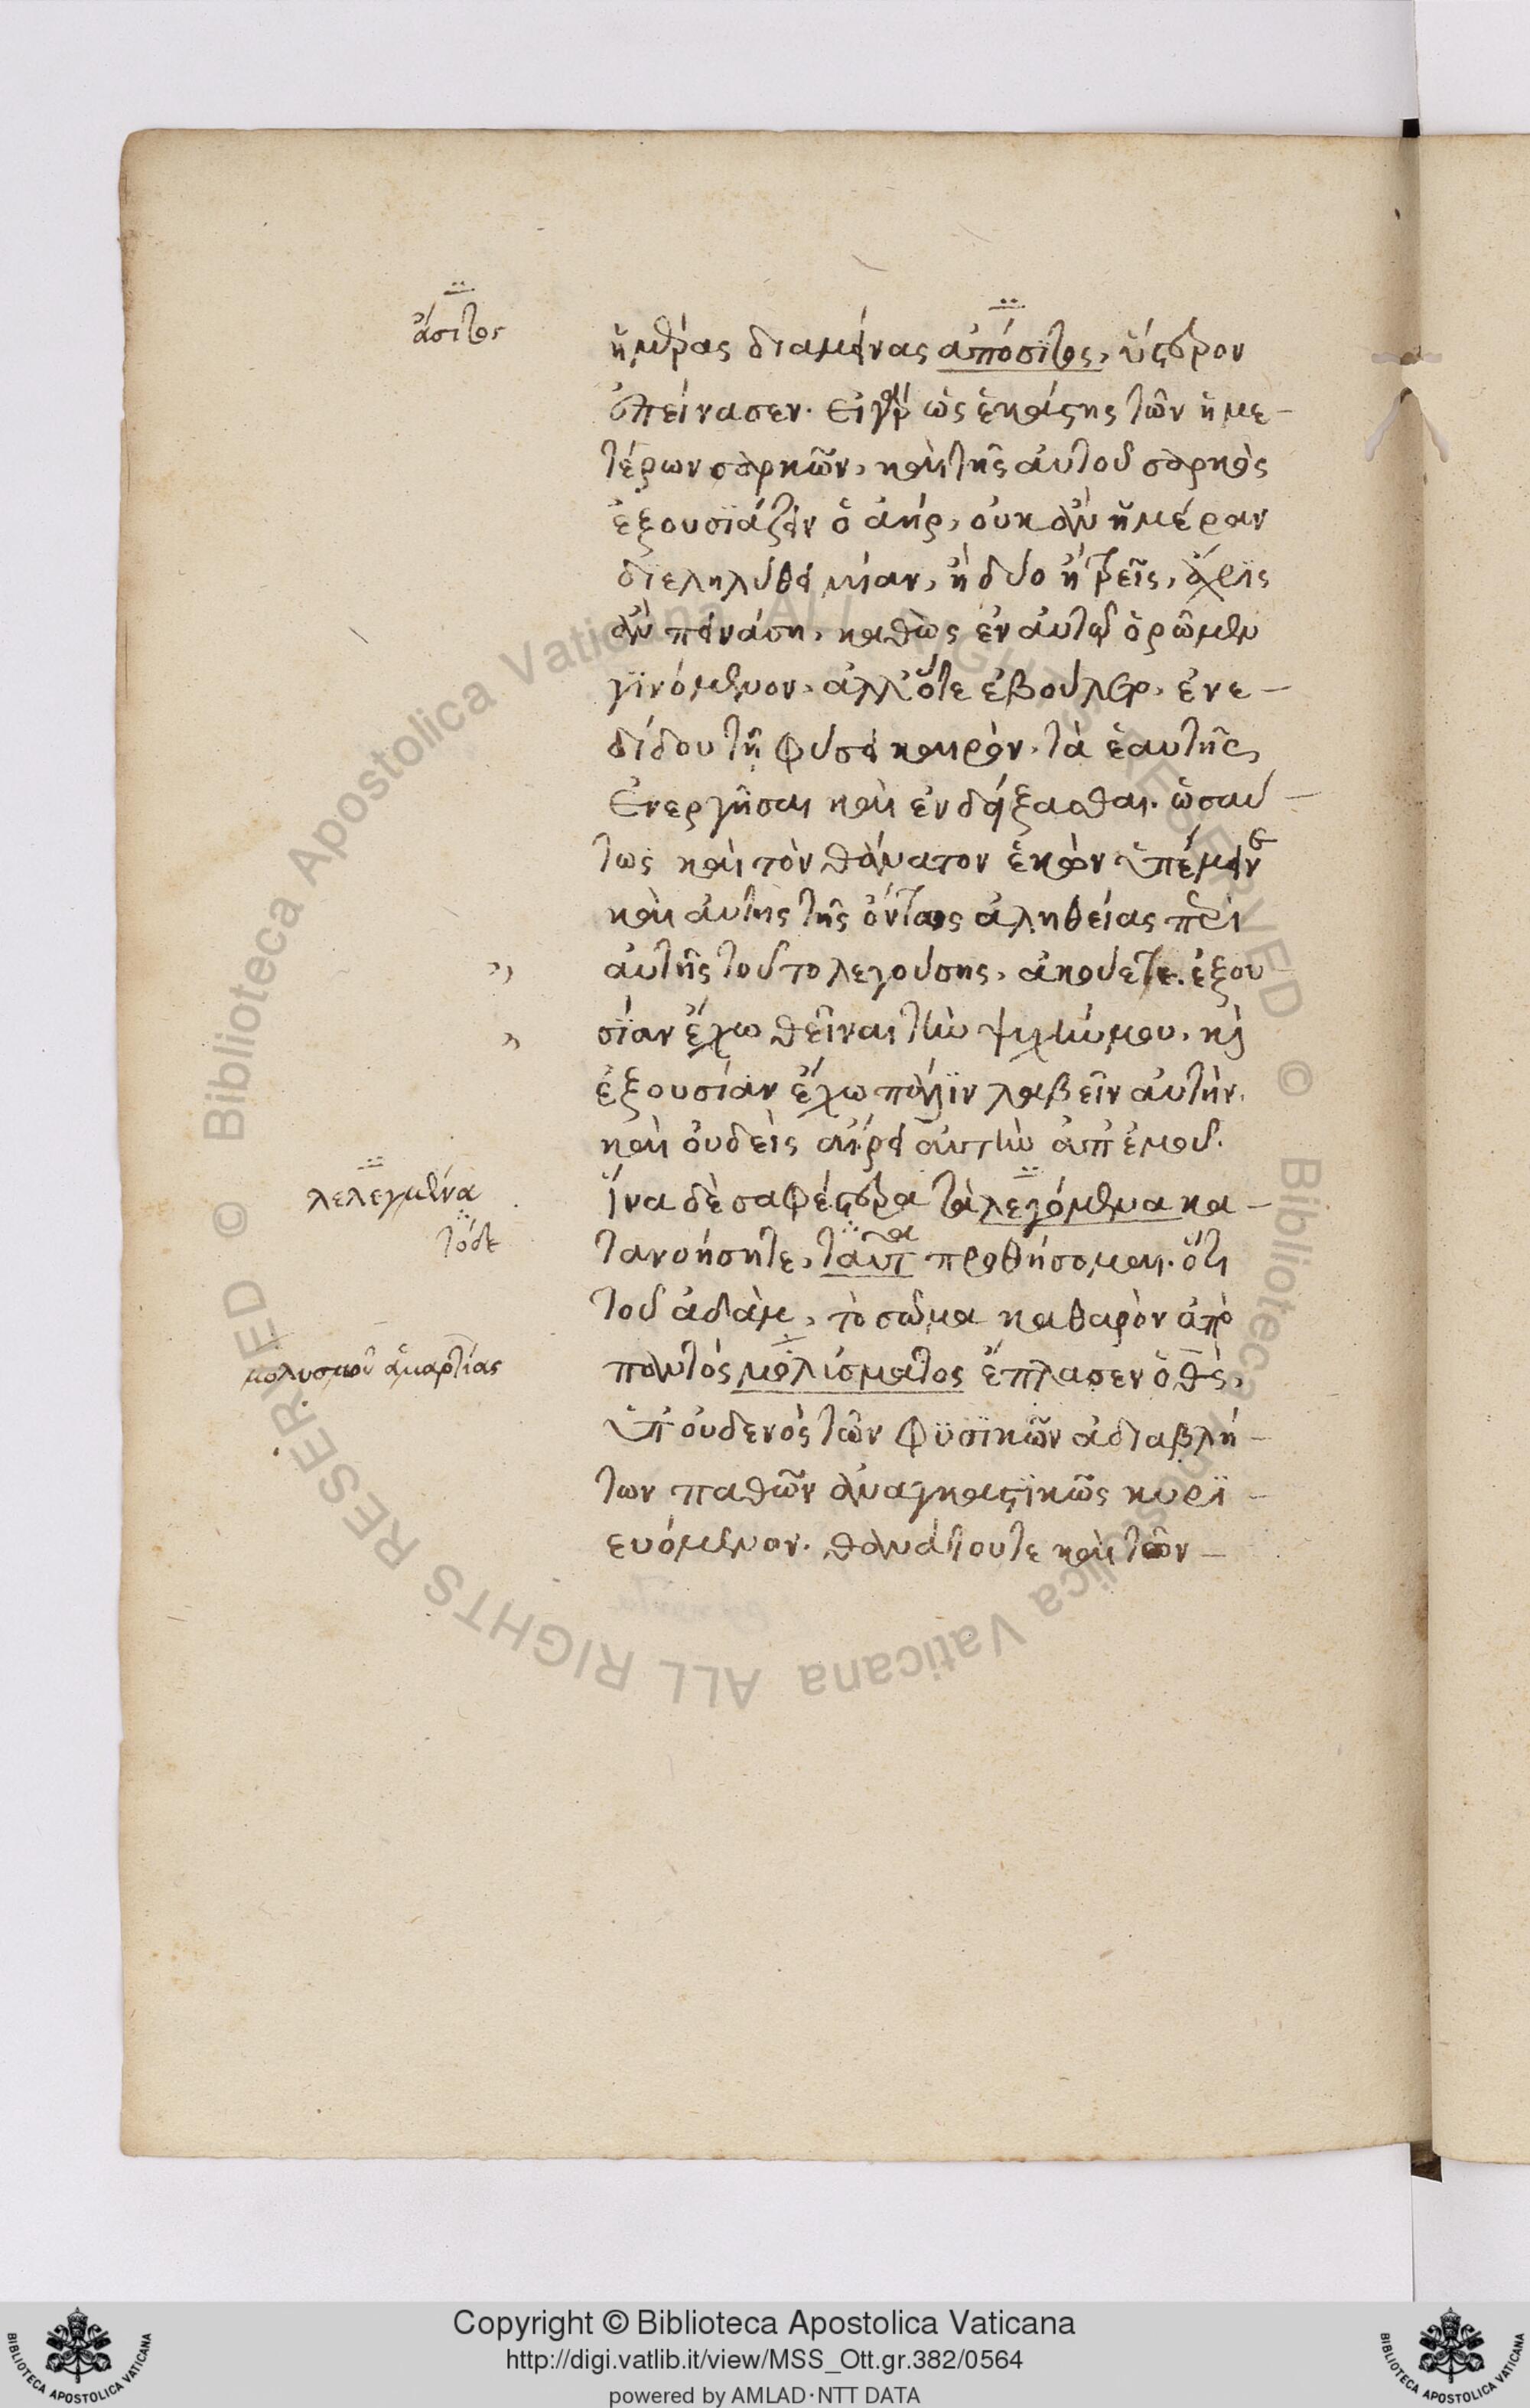 ἄσιτος
ἡμέρας διαμείνας ἀπόσιτος, ὕστερον
ἐπείνασεν. εἰ γὰρ ὡς ἑκάστης τῶν ἡμε-
τέρων σαρκῶν, καὶ τῆς αὐτοῦ σαρκὸς
ἐξουσίαζεν ὁ ἀὴρ, οὐκ ἂν ἡμέραν
διεληλύθει μίαν, ἢ δύο ἢ τρεῖς, ἄχρις
ἂν πεινάση, καθὼς ἐν αὐτῶ ὁρῶμεν
γινόμενον. ἀλλ' ὅτε ἐβούλετο, ἐνε-
δίδου τῆ φύσει καιρὸν, τὰ ἑαυτῆς
ἐνεργῆσαι καὶ ἐνδείξασθαι. ὡσαύ-
τως καὶ τὸν θάνατον ἑκὼν ὑπέμεινε
καὶ αὐτῆς τῆς ὄντως ἀληθείας περὶ
αὐτῆς τοῦτο λεγούσης, ἀκούετε. ἐξου
σίαν ἔχω θεῖναι τὴν ψυχήν μου, καὶ
ἐξουσίαν ἔχω πάλιν λαβεῖν αὐτήν.
καὶ οὐδεὶς αἴρει αὐτὴν ἀπ' ἐμοῦ.
λελεγμένα
ἵνα δὲ σαφέστερα τὰ λεγόμενα κα-
τόδε
τανοήσητε, ταῦτα προθήσομαι. ὅτι
τοῦ ἀδὰμ, τὸ σῶμα καθαρὸν ἀπὸ
μολυσμοῦ ἁμαρτίας
παντὸς μολίσματος ἔπλασεν ὁ θς,
ὑπ' οὐδενὸς τῶν φυσικῶν ἀδιαβλή-
των παθῶν ἀναγκαστικῶς κυρι-
ευόμενον. θανάτου τε καὶ τῶν-
Copyright © Biblioteca Apostolica Vaticana
http://digi.vatlib.it/view/MSS_Ott.gr.382/0564
powered by AMLAD·NTT DATA